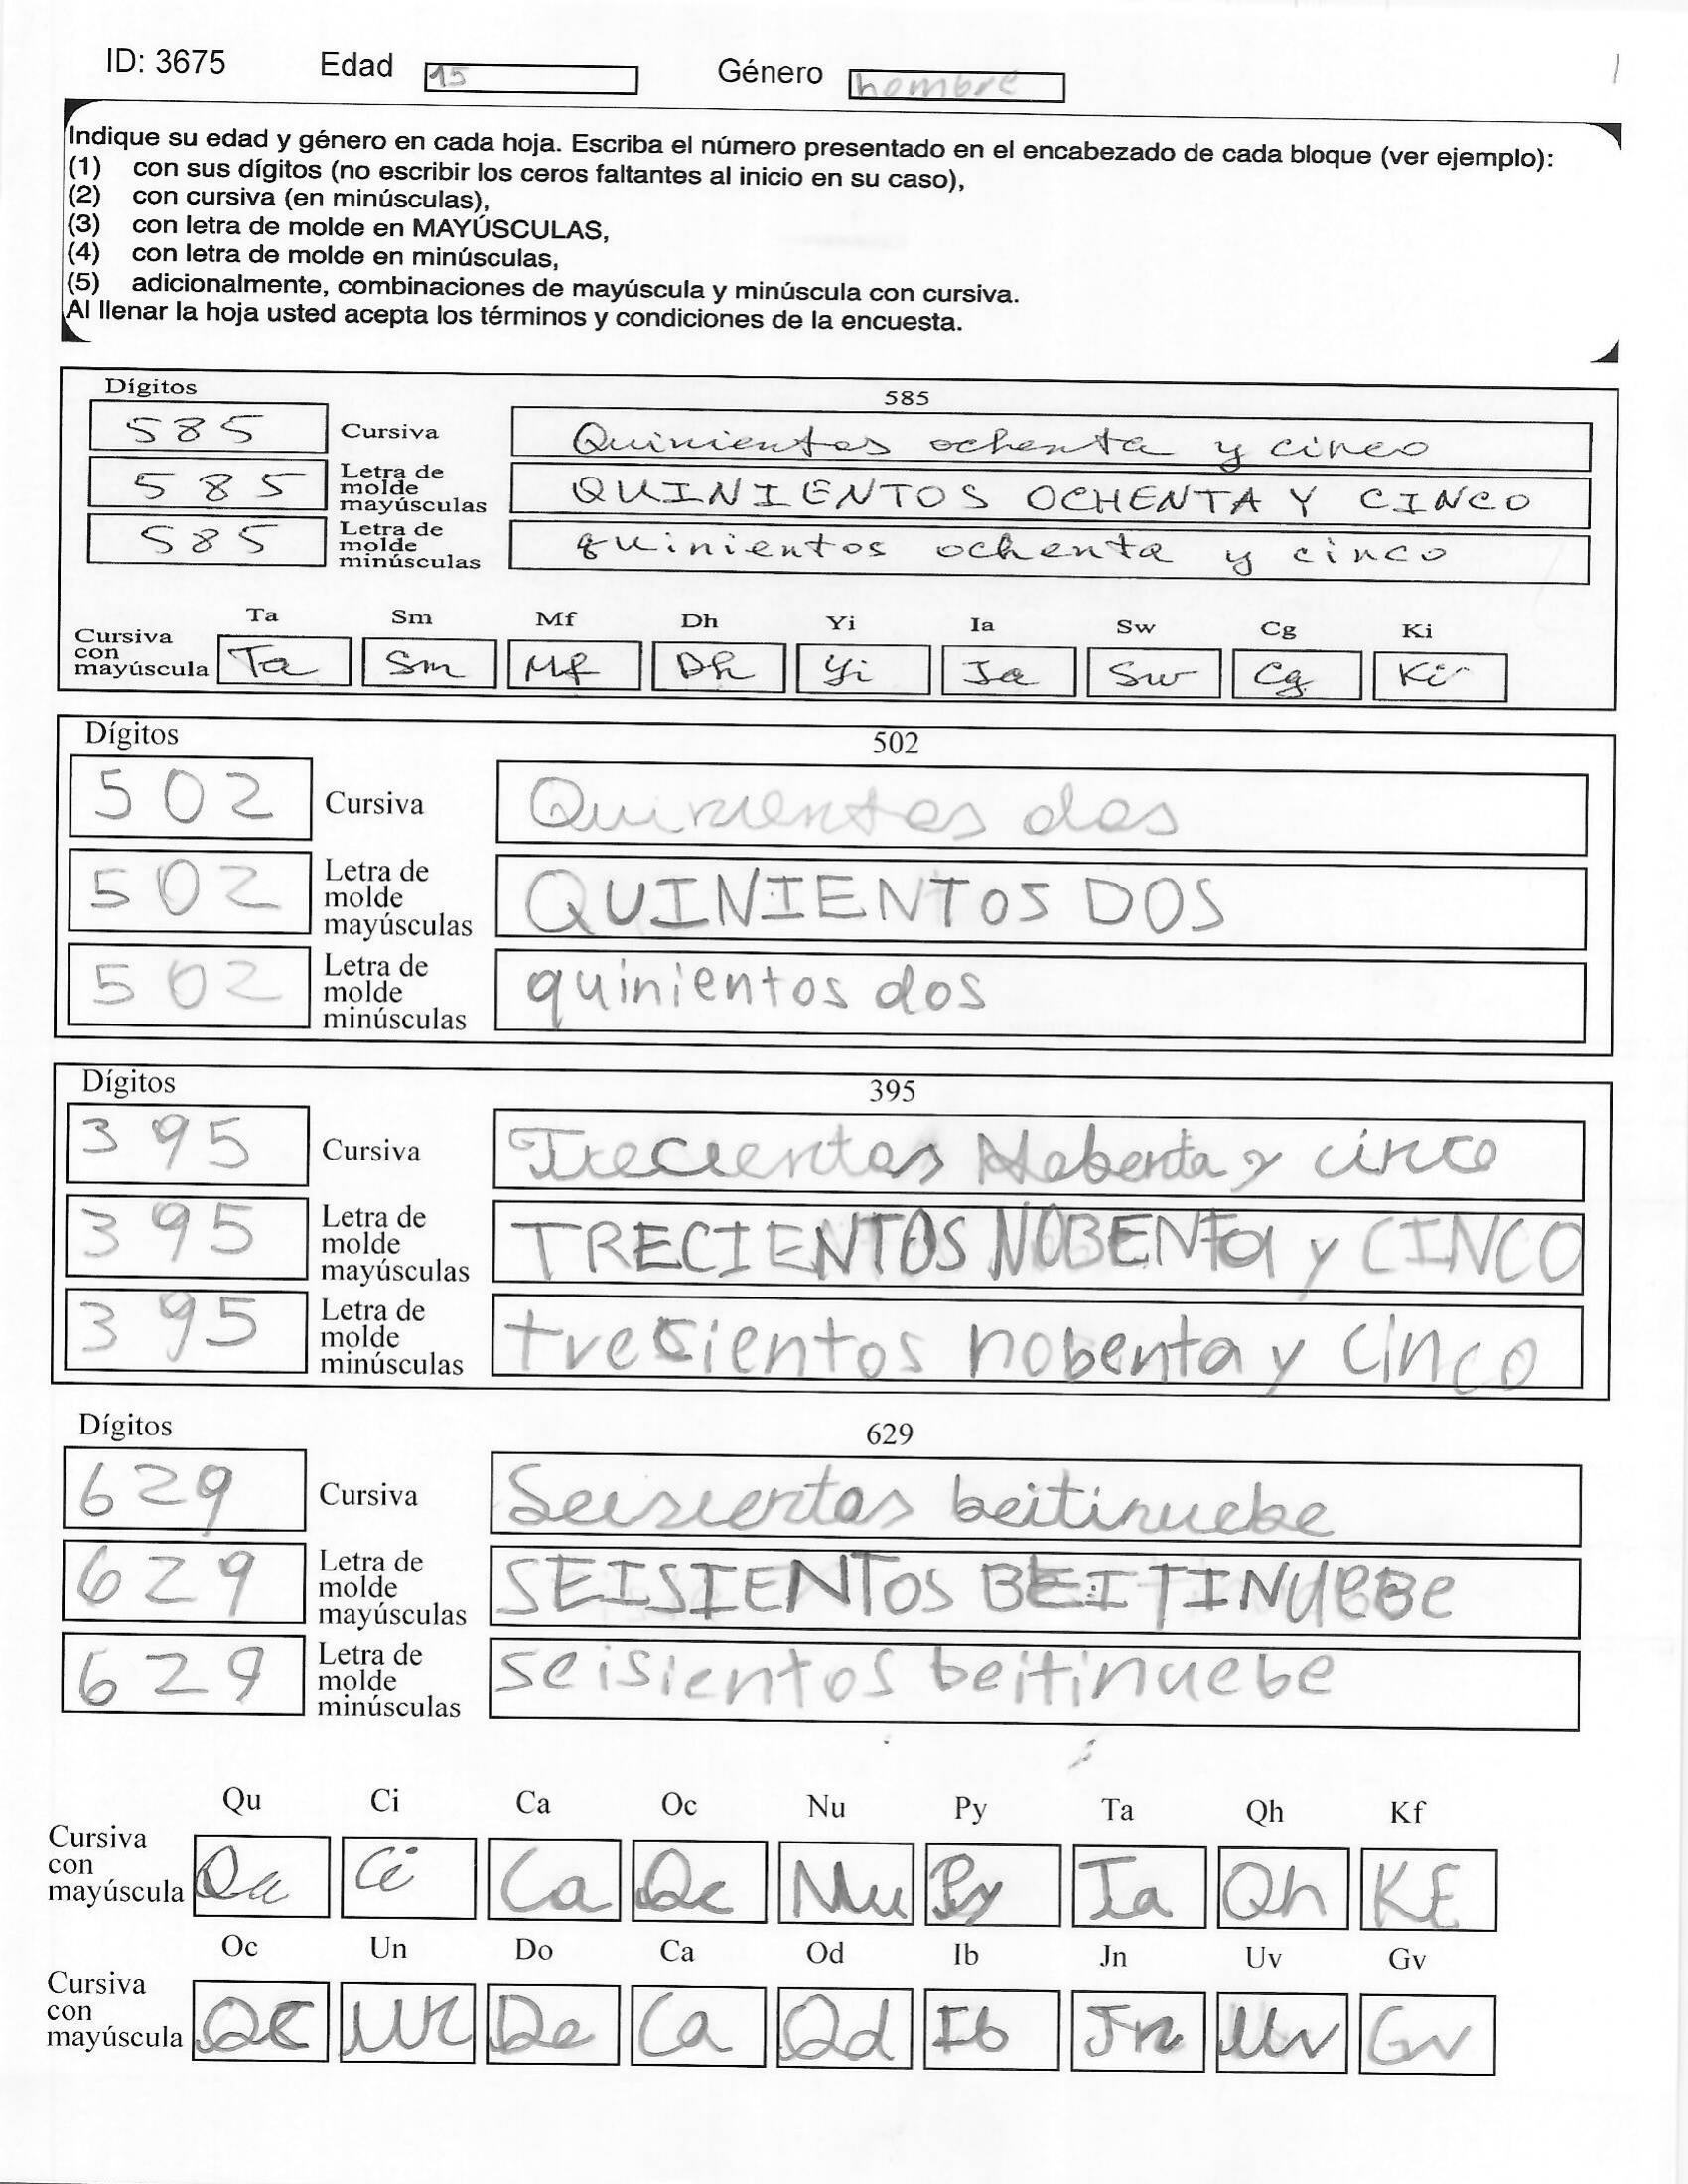 ID: 3675 Edad 15 Género hombre 1
Indique su edad y género en cada hoja. Escriba el número presentado en el encabezado de cada bloque (ver ejemplo):
(1) con sus dígitos (no escribir los ceros faltantes al inicio en su caso),
(2) con cursiva (en minúsculas),
(3) con letra de molde en MAYÚSCULAS,
(4) con letra de molde en minúsculas,
(5) adicionalmente, combinaciones de mayúscula y minúscula con cursiva.
Al llenar la hoja usted acepta los términos y condiciones de la encuesta.
Dígitos 585
585 Cursiva Quinientos ochenta y cinco
585 Letra de molde mayúsculas QUINIENTOS OCHENTA Y CINCO
585 Letra de molde minúsculas quinientos ochenta y cinco
Ta Sm Mf Dh Yi Ia Sw Cg Ki
Cursiva con mayúscula Ta Sm Mf Dh Yi Ia Sw Cg Ki
Dígitos 502
502 Cursiva Quinientos dos
502 Letra de molde mayúsculas QUINIENTOS DOS
502 Letra de molde minúsculas quinientos dos
Dígitos 395
395 Cursiva Trecientos Nobenta y cinco
395 Letra de molde mayúsculas TRECIENTOS NOBENTa y CINCO
395 Letra de molde minúsculas trecientos nobenta y cinco
Dígitos 629
629 Cursiva Seisientos beitinuebe
629 Letra de molde mayúsculas SEISIENTOS BEITINUEBe
629 Letra de molde minúsculas seisientos beitinuebe
Qu Ci Ca Oc Nu Py Ta Qh Kf
Cursiva con mayúscula Qu Ci Ca Oc Nu Py Ta Qh KF
Oc Un Do Ca Od Ib Jn Uv Gv
Cursiva con mayúscula Oc Un Do Ca Od Ib Jn Uv Gv